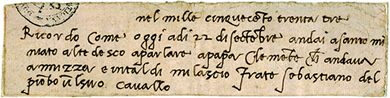 nel mille cinquecẽto trenta tre
Ricordo come oggi adi 22 di sectembre andai a santo mi
niato al tedesco a parlare a papa Clemẽte che andava
a nizza e in tal dì mi lasciò frate sebastiano del
piombo un suo cavallo